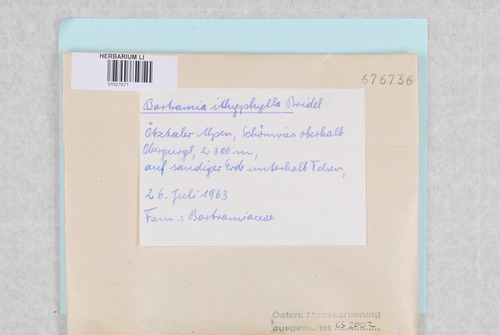 HERBARIUM LI
676736
Bartramia ithyphylla Bridel
Ötztaler Alpen, Schönwies oberhalb
Obergurgl, 2300 m,
auf sandiger Erde unterhalb Felsen,
26. Juli 1963
Fam.: Bartramiaceae
Österr. Mooskartierung
ausgewertet 2002